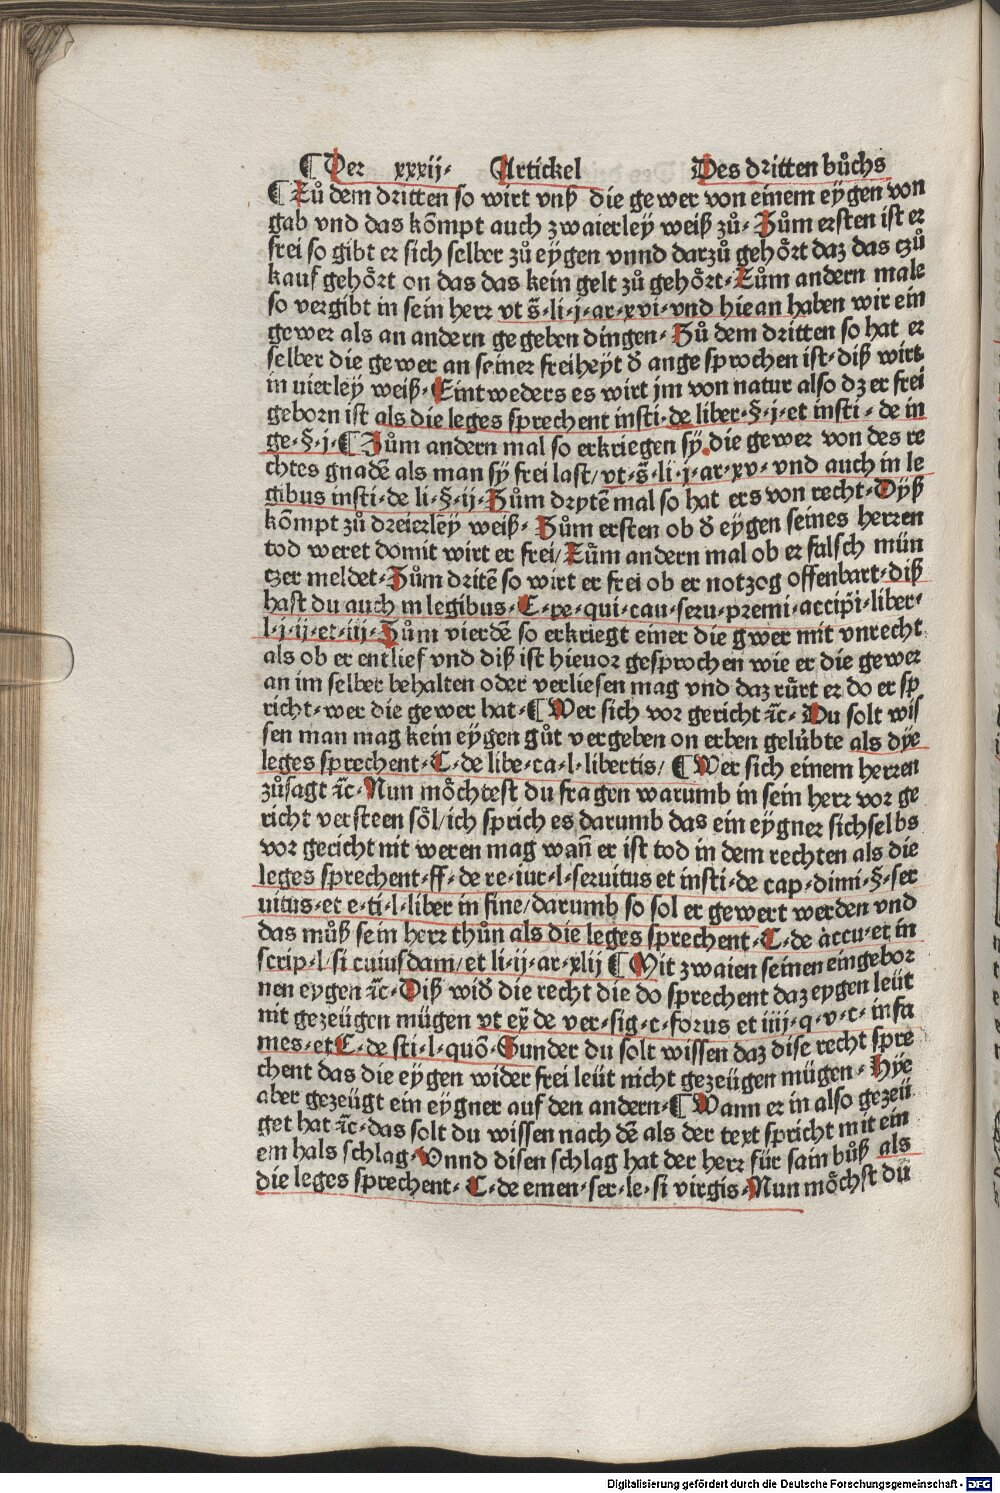 ¶ Der xxxij· Artickel Des dritten bůchs
¶ Zů dem dritten so wirt vnß die gewer von einem eygen von
gab vnd das kōmpt auch zwaierley weiß zů· Zům ersten ist er
frei so gibt er sich selber zů eygen vnnd darzů gehȫrt daz das czů
kauf gehȫrt on das das kein gelt zů gehȫrt· Zům andern male
so vergibt in sein herr vt s̄·li·j·ar·xvi·vnd hiean haben wir ein
gewer als an andern gegeben dingen· Zů dem dritten so hat er
selber die gewer an seiner freiheyt đ ange sprochen ist·diß wirt
in vierley weiß·Eintweders es wirt jm von natur also dz er frei
geborn ist als die leges sprechent insti·de liber·§·j·et insti·de in
ge·§·j·¶ Zům andern mal so erkriegen sÿ die gewer von des re
chtes gnadē als man sÿ frei last/vt·s̄·li·j·ar·xv·vnd auch in le
gibus insti·de li·§·ij·Zům drytē mal so hat ers von recht·Dyß
kōmpt zů dreierlēy weiß· Zům ersten ob đ eygen seines herren
tod weret domit wirt er frei/Zům andern mal ob er falsch mün
czer meldet·Zům dritē so wirt er frei ob er notzog offenbart·diß
hast du auch in legibus·C·xe·qui·cau·seru·premi·accipi·liber·
l·j·ij·et·iij·Zům vierdē so erkriegt einer die gwer mit vnrecht
als ob er entlief vnd diß ist hieuor gesprochen wie er die gewer
an im selber behalten oder verliesen mag vnd daz rürt er do er sp
richt·wer die gewer hat·¶ Wer sich vor gericht ⁊c· Du solt wis
sen man mag kein eygen gůt vergeben on erben gelübte als dÿe
leges sprechent·C·de libe·ca·l·libertis/ ¶ Wer sich einem herren
zůsagt ⁊c·Nun möchtest du fragen warumb in sein herr vor ge
richt versteen söl/ich sprich es darumb das ein eygner sichselbs
vor gericht nit weren mag wañ er ist tod in dem rechten als die
leges sprechent·ff·de re·iur·l·seruitus et insti·de cap·dimi·§·ser
uitus·et e·ti·l·liber in fine/darumb so sol er gewert werden vnd
das můß sein herr thůn als die leges sprechent·C·de accu·et in
scrip·l·si cuiusdam/et li·ij·ar·xlij ¶ Mit zwaien seinen eingebor
nen eygen ⁊c·Diß wiđ die recht die do sprechent daz eygen leüt
nit gezeügen mügen vt ex̄ de ver·sig·c·forus et iiij·q·v·c·infa
mes·et C·de sti·l·quō·Sunder du solt wissen daz dise recht spre
chent das die eygen wider frei leüt nicht gezeügen mügen· Hÿe
aber gezeügt ein eygner auf den andern·¶ Wann er in also gezeü
get hat ⁊c·das solt du wissen nach dē als der text spricht mit ein
em hals schlag·Vnnd disen schlag hat der herr für sain bůß als
die leges sprechent· C·de emen·ser·le·si virgis·Nun möchst du
Digitalisierung gefördert durch die Deutsche Forschungsgemeinschaft - DFG